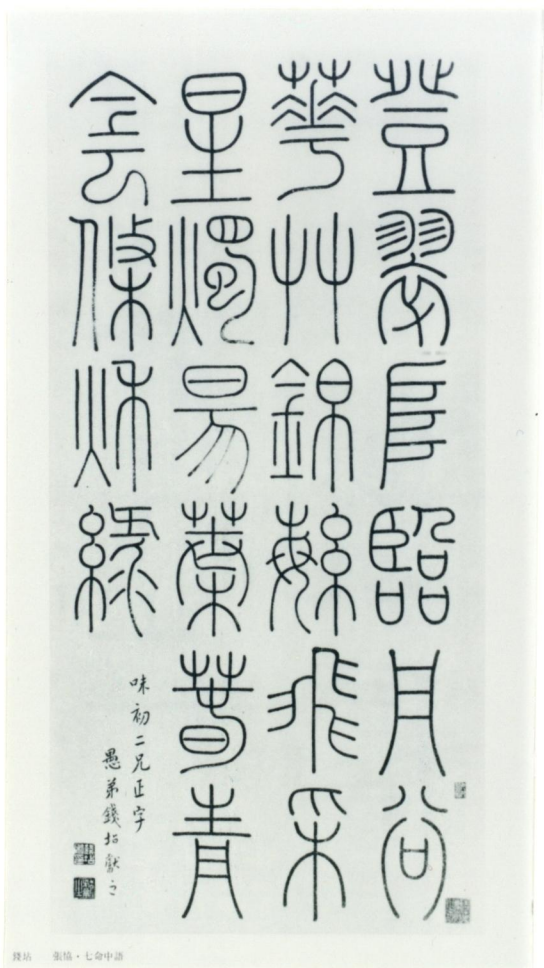 登翠阜臨丹谷
華艸錦緐飛采
星燭昜葉萅青
侌條秌綠
味初二兄正字
愚弟錢坫獻之
錢坫　張協・七命中語